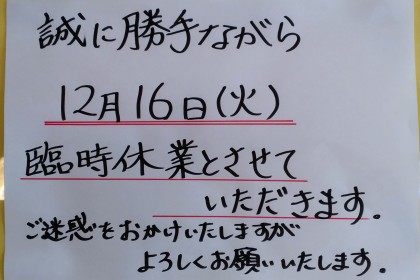 誠に勝手ながら
12月16日(火)
臨時休業とさせて
いただきます。
ご迷惑をおかけいたしますが
よろしくお願いいたします。